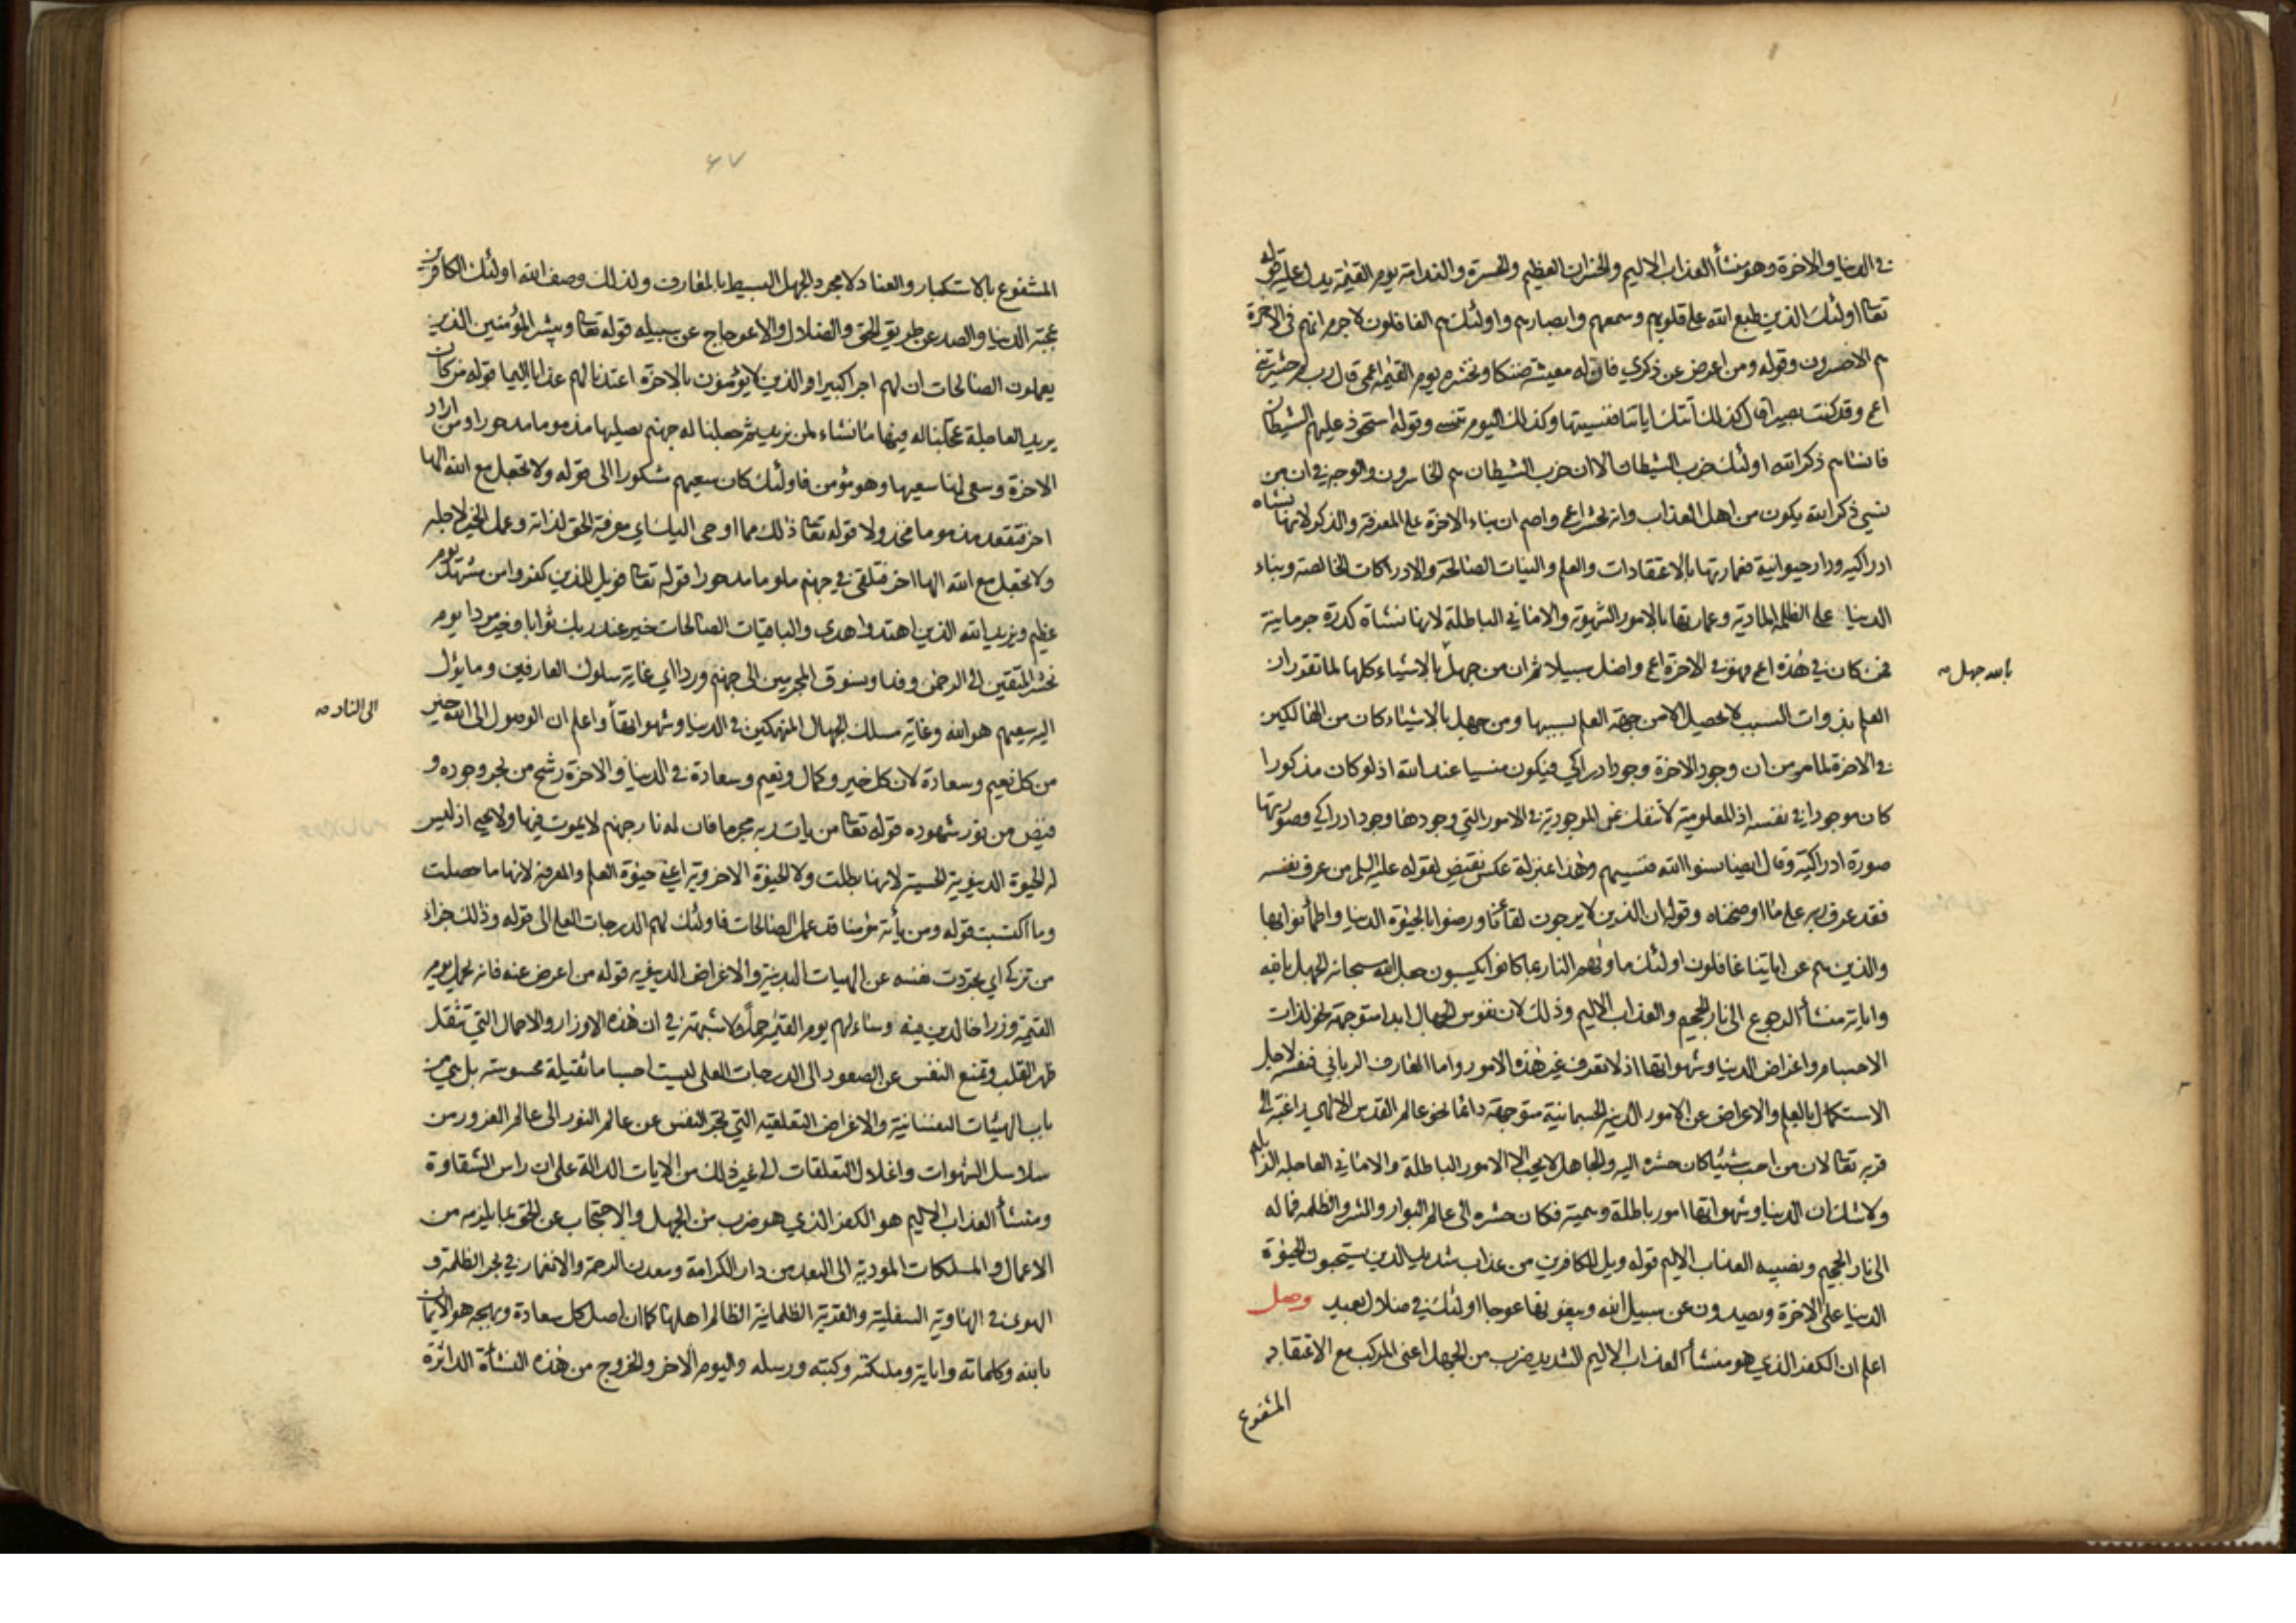 في الدنيا والاخرة وهو منشأ العذاب الاليم والخسران العظيم والحسرة والندامة يوم القيمة يدل عليه قوله
تعالى اولئك الذين طبع الله على قلوبهم وسمعهم وابصارهم واولئك هم الغافلون لا جرم انهم في الاخرة
هم الاخسرون وقوله ومن اعرض عن ذكري فان له معيشة ضنكا ونحشره يوم القيمة اعمى قال رب لم حشرتني
اعمى وقد كنت بصيرا قال كذلك اتتك اياتنا فنسيتها وكذلك اليوم تنسى وقوله استحوذ عليهم الشيطان
فانساهم ذكر الله اولئك حزب الشيطان الا ان حزب الشيطان هم الخاسرون والوجه في ان من
نسي ذكر الله يكون من اهل العذاب وانه يحشر اعمى واصم ان بناء الاخرة على المعرفة والذكر لانها نشاه
ادراكيه ودار حيوانية فعمارتها بالاعتقادات والعلم والنيات الصالحة والادراكات الخالصة وبناء
الدنيا على الظلمه المادية وعمارتها بالامور الشهوية والاماني الباطلة لانها نشاة كدرة جرمانية
فمن كان في هذه اعمى فهو في الاخرة اعمى واضل سبيلا ثم ان من جهل بالاشياء كلها لما تقرر ان
بالله جهل صه
العلم بذوات السبب لا يحصل الا من جهة العلم بسببها ومن جهل بالاشياء كان من الهالكين
في الاخرة لما مر من ان وجود الاخرة وجود ادراكي فيكون منسيا عند الله اذ لو كان مذكورا
كان موجودا في نفسه اذ المعلومية لا تنفك عن الموجودية في الامور التي وجودها وجود ادراكي وصورتها
صورة ادراكية وقال ايضا نسوا الله فنسيهم وهذا بمنزلة عكس نقيض لقوله عليه السلم من عرف نفسه
فقد عرف ربه على ما اوضحناه وقوله ان الذين لا يرجون لقائنا ورضوا بالحيوة الدنيا واطمأنوا بها
والذين هم عن اياتنا غافلون اولئك ماويهم النار بما كانوا يكسبون جعل الله سبحانه الجهل بالله
واياته منشأ الرجوع الى نار الجحيم والعذاب الاليم وذلك لان نفوس الجهال ابدا متوجهة نحو لذات
الاجسام واغراض الدنيا وشهواتها اذ لا تعرف غير هذه الامور واما العارف الرباني فنفسه لاجل
الاستكمال بالعلم والاعراض عن الامور الدنية الجسمانية متوجهة دائما نحو عالم القدس الالهي راغبة الى
قربه تعالى لان من احب شيئا كان حشره اليه والجاهل لا يحب الا الامور الباطلة والاماني العاجلة الزايله
ولا شك ان الدنيا وشهواتها امور باطلة وهمية فكان حشره الى عالم البوار والشر والظلمه فماله
الى نار الجحيم ونصيبه العذاب الاليم قوله ويل للكافرين من عذاب شديد الذين يستحبون الحيوة
الدنيا على الاخرة ويصدون عن سبيل الله ويبغونها عوجا اولئك في ضلال بعيد وصل
اعلم ان الكفر الذي هو منشأ العذاب الاليم الشديد ضرب من الجهل اعني المركب مع الاعتقاد
المشفوع
٤٧
المشفوع بالاستكبار والعناد لا مجرد الجهل البسيط بالمعارف ولذلك وصف الله اولئك الكافرين
بمحبة الدنيا والصد عن طريق الحق والضلال والاعوجاج عن سبيله قوله تعالى ويبشر المؤمنين الذين
يعملون الصالحات ان لهم اجرا كبيرا والذين لا يؤمنون بالاخرة اعتدنا لهم عذابا اليما قوله من كان
يريد العاجلة عجلنا له فيها ما نشاء لمن نريد ثم جعلنا له جهنم يصليها مذموما مدحورا ومن اراد
الاخرة وسعى لها سعيها وهو مؤمن فاولئك كان سعيهم مشكورا الى قوله ولا تجعل مع الله الها
اخر فتقعد مذموما مخذولا قوله تعالى ذلك مما اوحى اليك اي معرفة الحق لذاته وعمل الخير لاجله
ولا تجعل مع الله الها اخر فتلقى في جهنم ملوما مدحورا قوله تعالى فويل للذين كفروا من مشهد يوم
عظيم ويزيد الله الذين اهتدوا هدى والباقيات الصالحات خير عند ربك ثوابا وخير مردا يوم
نحشر المتقين الى الرحمن وفدا ونسوق المجرمين الى جهنم وردا اي غاية سلوك العارفين وما يؤل
اليه سعيهم هو الله وغاية مسلك الجهال المنهمكين في الدنيا وشهواتها واعلم ان الوصول الى الله خير
الى النار صه
من كل نعيم وسعادة لان كل خير وكمال ونعيم وسعادة في الدنيا والاخرة رشح من بحر وجوده و
فيض من نور شهوده قوله تعالى من يات ربه مجرما فان له نار جهنم لا يموت فيها ولا يحيى اذ ليس
له الحيوة الدنيوية الحسية لانها بطلت ولا الحيوة الاخروية اعني حيوة العلم والمعرفة لانها ما حصلت
وما اكتسبت قوله ومن يأته مؤمنا قد عمل الصالحات فاولئك لهم الدرجات العلى الى قوله وذلك جزاء
من تزكى اي تجردت نفسه عن الهيات البدنية والاغراض الدنيويه قوله من اعرض عنه فانه يحمل يوم
القيمة وزرا خالدين فيه وساء لهم يوم القيمة حملا ولا شبهة في ان هذه الاوزار والاحمال التي تثقل
ظهر القلب وتمنع النفس عن الصعود الى الدرجات العلى ليست اجساما ثقيلة محسوسة بل هي من
باب الهيئات النفسانية والاغراض التعلقيه التي تجر النفس عن عالم النور الى عالم الغرور من
سلاسل الشهوات واغلال التعلقات الى غير ذلك من الايات الدالة على ان راس الشقاوة
ومنشأ العذاب الاليم هو الكفر الذي هو ضرب من الجهل والاحتجاب عن الحق بما يلزمه من
الاعمال والملكات المودية الى البعد من دار الكرامة ومعدن الرحمة والانغمار في بحر الظلمة و
الهوى في الهاوية السفلية والقرية الظلمانية الظالم اهلها كما ان اصل كل سعادة وبهجة هو الايمان
بالله وكلماته واياته وملئكته وكتبه ورسله واليوم الاخر والخروج من هذه النشأة الداثرة